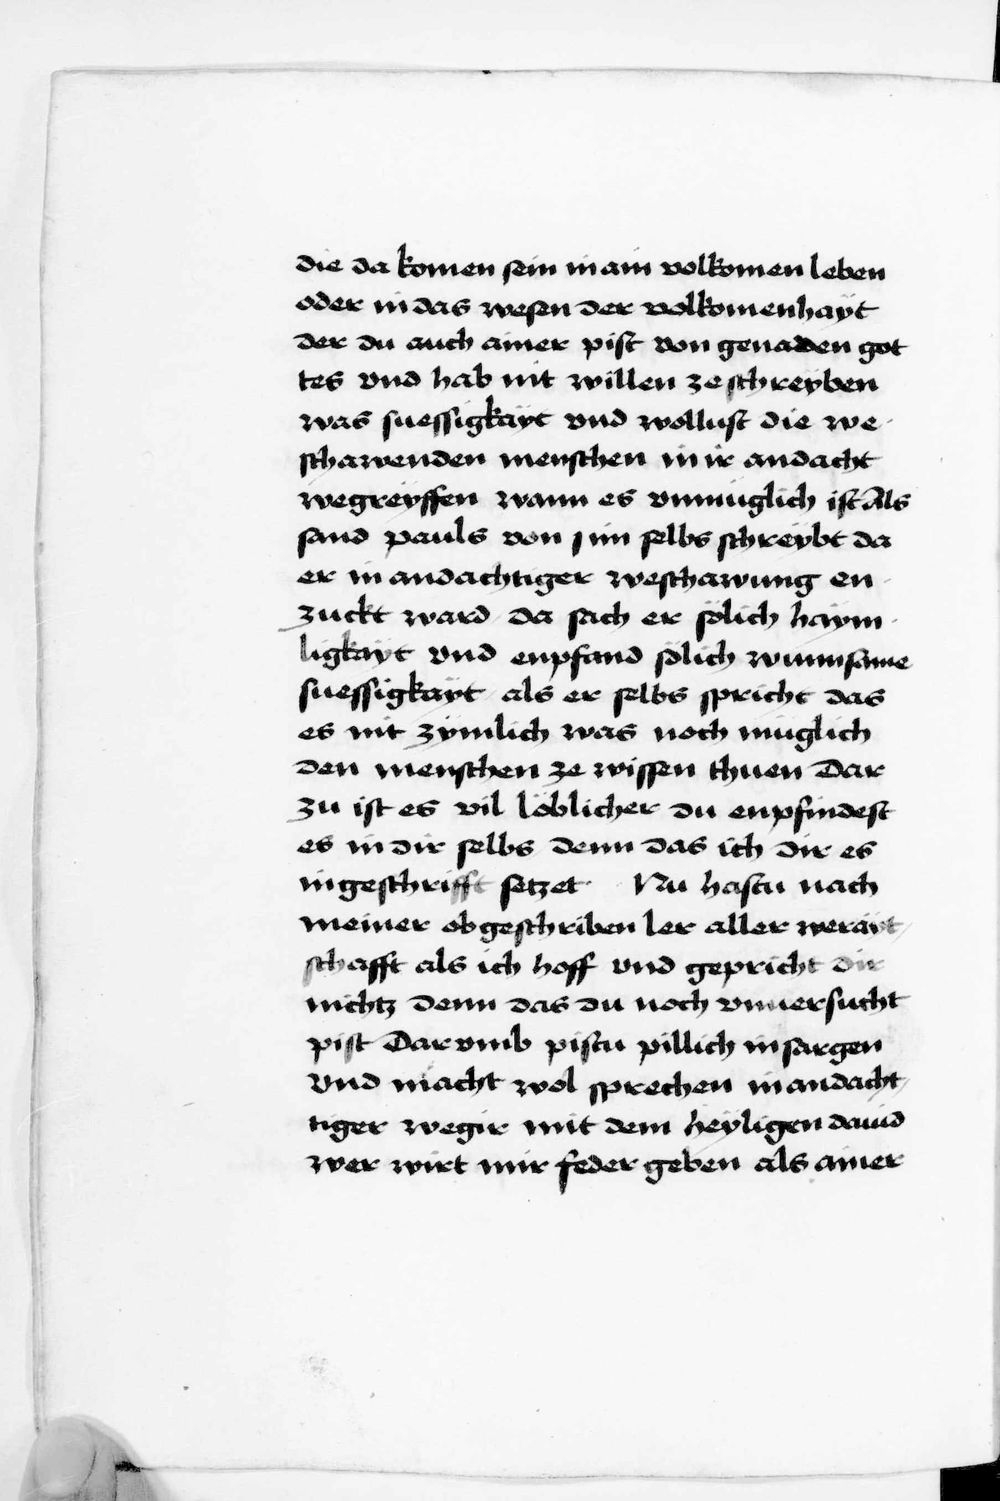 die da komen sein in ain volkomen leben
oder in das wesen der volkomenhaÿt
der du auch ainer pist von genaden got
tes vnd hab nit willen ze schreÿben
was suessigkaÿt vnd wollust die we
schawenden menschen in ir andacht
wegreÿffen wann es vnmüglich ist Als
sand pauls von jm selbs schreÿbt da
er in andachtiger weschawung en
zuckt ward da sach er sölich haÿm
ligkaÿt vnd enpfand sölich wunnsame
suessigkaÿt als er selbs spricht das
es nit zÿmlich was noch müglich
den menschen ze wissen thuen Dar
zu ist es vil löblicher du enpfindest
es in dir selbs denn das ich dir es
in geschrifft setzet Nu hastu nach
meiner obgeschriben ler aller weraÿt
schafft als ich hoff vnd gepricht dir
nichtz denn das du noch vnuersucht
pist Darvmb pistu pillich in sargen
vnd macht wol sprechen in andacht
tiger wegir mit dem heÿligen dauid
wer wirt mir feder geben als ainer